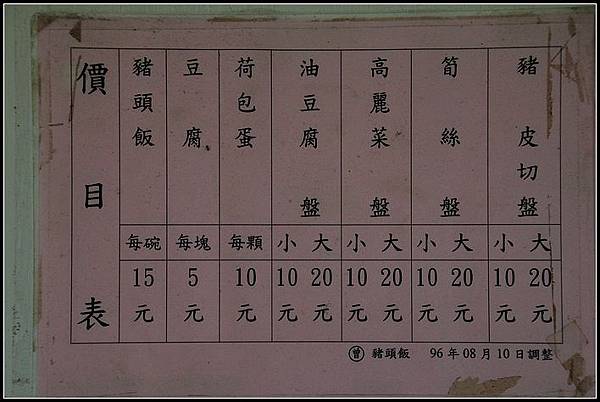 價目表
豬頭飯 每碗 15元
豆腐 每塊 5元
荷包蛋 每顆 10元
油豆腐盤 小 10元 大 20元
高麗菜盤 小 10元 大 20元
筍絲盤 小 10元 大 20元
豬皮切盤 小 10元 大 20元
曾 豬頭飯 96年08月10日調整